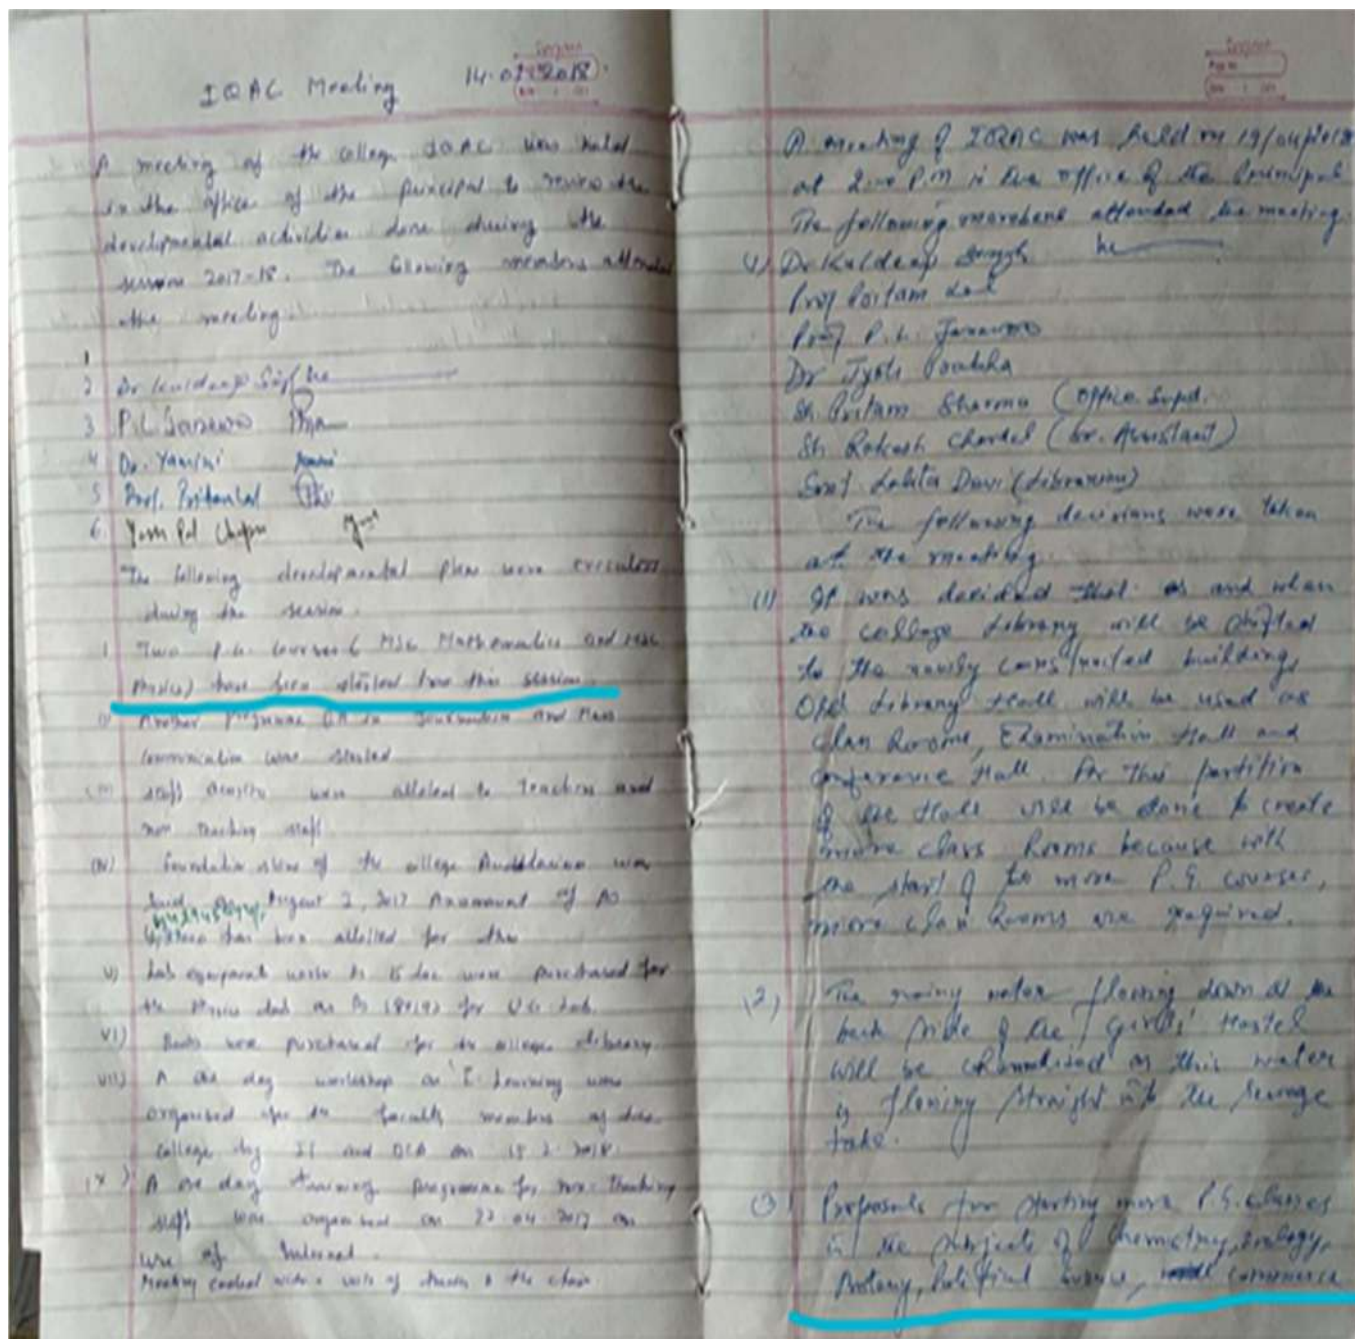 IQAC Meeting 14.0 2018.
A meeting of the college IQAC was held
in the office of the principal to review the
developmental activities done during the
session 2017-18. The following members attended
the meeting.
1
2 Dr Kuldeep Singh
3 P.L Januwo
4 Dr. Yamini
5 Prof. Pritam Lal
6 Yash Pal
The following developmental plans were executed
during the session.
1 Two P.G. Courses ( MSc Mathematics and MSc
Physics) have been started from this session.
Another in Journalism and Mass
Communication was started
staff were alloted to teachers and
non teaching staff.
(iv) Foundation stone of the college was
August 2, 2017 of
has been allotted for the
v) Lab equipment worth Rs 15 lac were purchased for
the Physics Lab for U.G Lab.
vi) Books were purchased for the college library.
vii) A one day workshop on E-Learning was
organised for the faculty members of the
college by and on 15.2.2018.
ix) A one day training programme for non-teaching
staff was organised on 22.04.2017 on
use of Internet.
Meeting ended with a vote of thanks to the chair
A meeting of IQAC was held on 19/04/2018
at 2:00 P.M in the office of the Principal
The following members attended the meeting.
1) Dr Kuldeep Singh
Prof Pritam Lal
Prof P.L. Januwo
Dr Jyoti
Sh Pritam Sharma (Office Supd.
Sh Rakesh (Sr. Assistant)
Smt Lalita Devi (Librarian)
The following decisions were taken
at the meeting.
(1) It was decided that as and when
the college Library will be shifted
to the newly constructed building,
Old Library Hall will be used as
Class Rooms, Examination Hall and
Conference Hall. For this partition
of the Hall will be done to create
more class Rooms because with
the start of to more P.G. courses,
more class Rooms are required.
(2) The rainy water flowing down at the
back side of the Girls' Hostel
will be channelised as this water
is flowing straight into the sewage
(3) Proposals for starting more P.G. classes
in the subjects of Chemistry, Zoology,
Botany, Political Science, Commerce